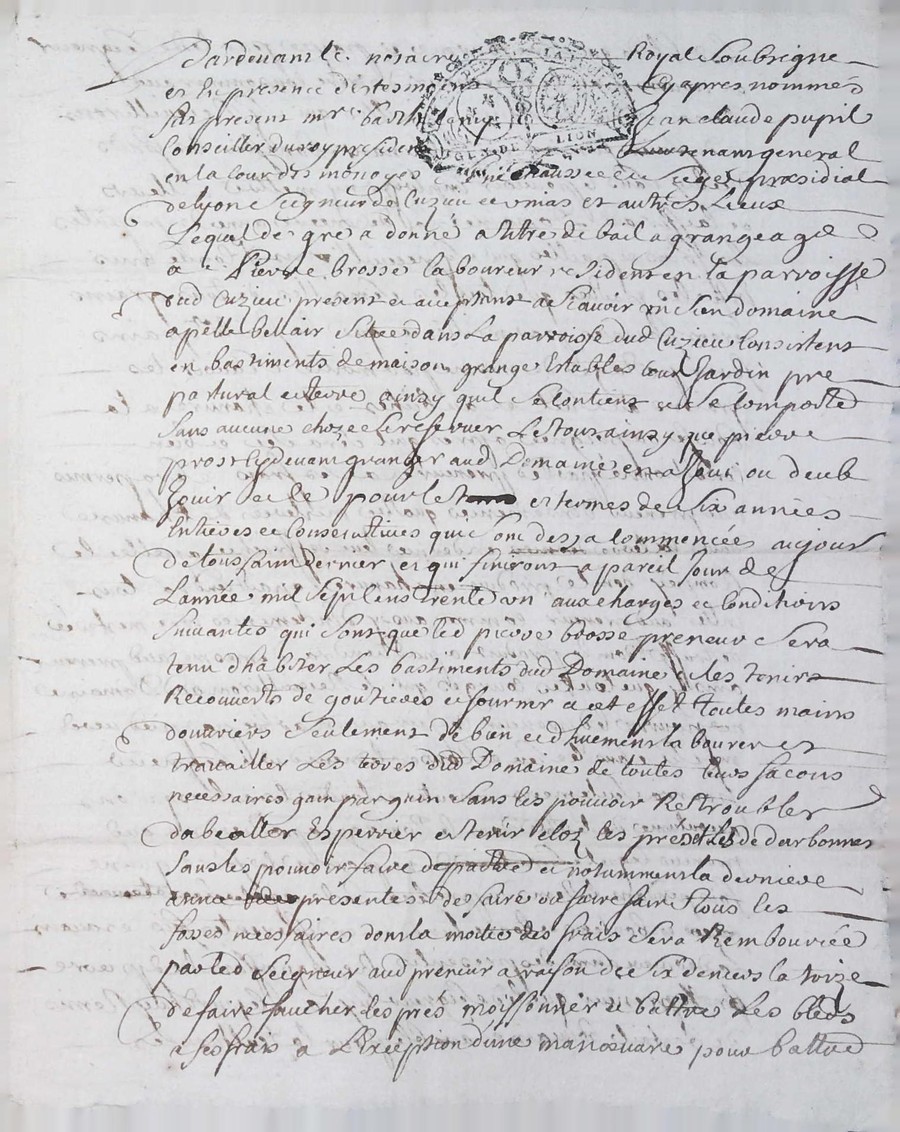 Pardevant le notaire Royal Soubsigne
et En presence des tesmoings Cy apres nommés
fut present mre barthelemy Jean claude pupil
Conseiller du roy president Lieutenant general
en la Cour des monoyes senechaussee et siege præsidial
de lyon Seigneur de Cuzieu et autres Lieux
Lequel de gre a donné a titre de bail a grangeage
a Pierre brosse laboureur resident en la parroisse
dud Cuzieu present et acceptant a Scavoir un sien domaine
apellé bellair Situé dans la parroisse dud Cuzieu Consistent
en bastiments de maison grange Estables cour Jardin pre
pastural et terre ainsy quil se Contient et se Comporte
sans aucune choze se reserver Le tout ainsy que pierre
prost cydevant granger aud Domaine en a Joui ou deub
Jouir et ce pour le et termes de Six années
Entieres et Consecutives qui ont desja Commencées au jour
de toussaint dernier et qui finiront a pareil Jour de
L'année mil sept cens trente un aux charges et Conditions
suivantes qui sont que led pierre brosse preneur Sera
tenu d'habiter Les bastiments dud Domaine les tenir
Recouverts de goutieres et fournir a cet effet toutes mains
d'ouvriers Seulement de bien et duement labourer et
travailler Les terres dud Domaine de toutes leurs facons
necessaires gain par gain sans les pouvoir Retroubler
Esperrier et tenir clos les prés
sans les pouvoir faire et notamment la derniere
année presentes de faire ou faire faire tous les
fossés necessaires dont la moitié des frais Sera Rembourcée
par led Seigneur aud preneur a raison de Six deniers la toize
de faire faucher les prés moissonner et battre Les bleds
a ses frais a L'Exception d'une manoeuvre pour battre
GEN DE LION